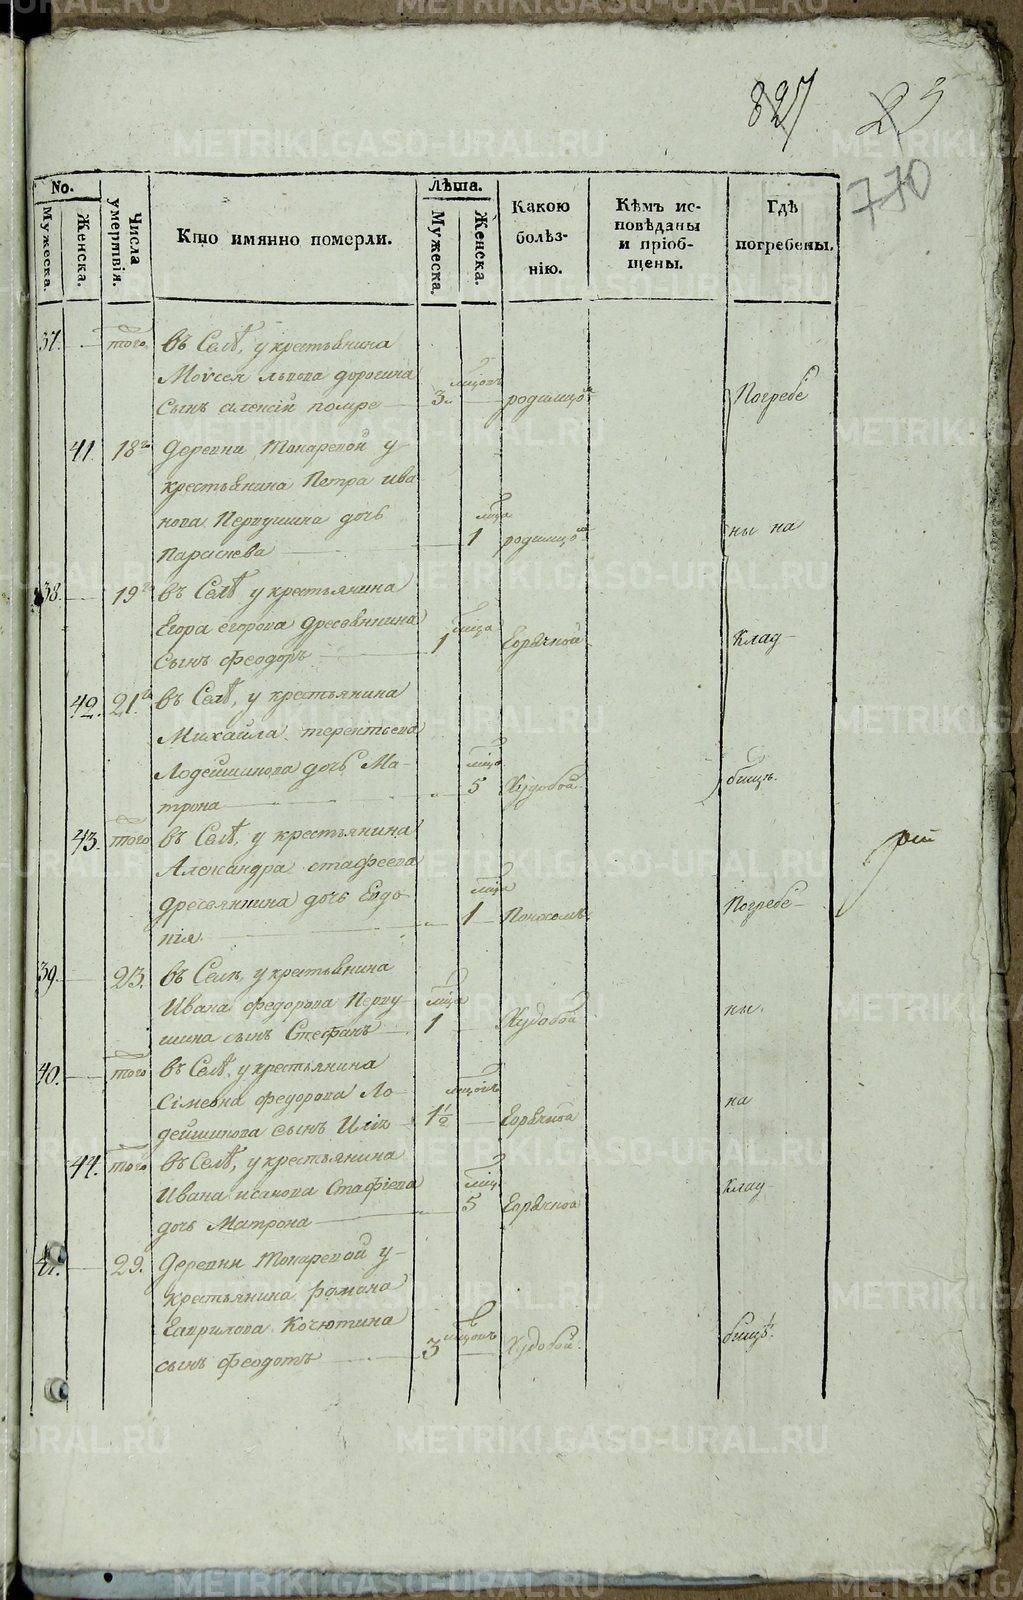 827 23
770
No. Лѣта.
Мужеска. Женска. Числа умертвія. Кто имянно померли. Мужеска. Женска. Какою болѣзнію. Кѣмъ исповѣданы и пріобщены. Гдѣ погребены.
37. того въ Селѣ, у крестьянина
Моисея львова
сынъ алексій помре 3 родимцо Погребе
41 18 Деревни Токаревой у
крестьянина Петра ива
нова Первушина дочь 1
параскева родимцо ны на
38. 19 въ Селѣ у крестьянина
Егора егорова дресвянина
сынъ феодоръ 1 Горячкой Клад
42. 21. въ Селѣ, у крестьянина
Михайла терентьева
Лодейшикова дочь Ма-
трона 5 Худобой бищѣ.
43. того въ Селѣ, у крестьянина
Александра стафеева
дресвянина дочь Евдо-
кія. 1 Погребе-
39. 23. въ Селѣ, у крестьянина
Ивана федорова Перву
шина сынъ Стефанъ 1 Худобой ны.
40. того въ Селѣ, у крестьянина
Сімеона федорова Ло-
дейшикова сынъ Иліа 1½ Горячкой на
44. того въ Селѣ, у крестьянина
Ивана исакова Стафіева
дочь Матрона 5 Горячкой клад
41. 29. Деревни Токаревой у-
крестьянина романа
Гаврилова Кочютина
сынъ феодотъ 3 Худобой. бищѣ.
METRIKI.GASO-URAL.RU